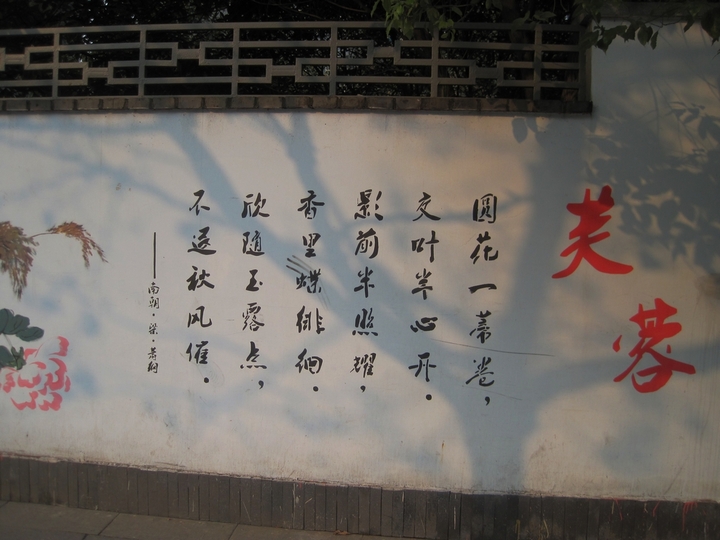 芙蓉
圆花一蒂卷，
交叶半心开．
影前半照耀，
香里蝶徘徊．
欣随玉露点，
不逐秋风催．
——南朝·梁·萧纲